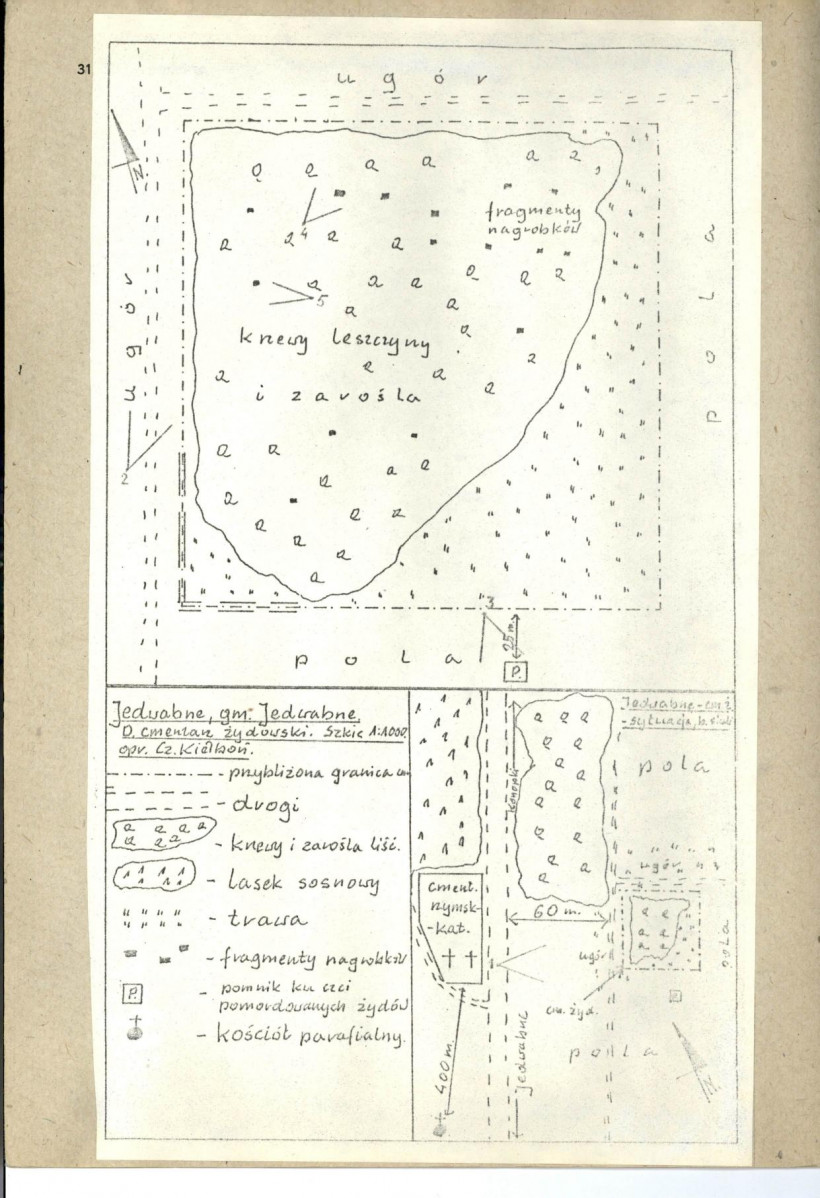 31
u g ó r
N
fragmenty
nagrobków
4
5
krzewy leszczyny
i zarośla
u g ó r
2
p o l a
3
25m.
P.
p o l a
Jedwabne, gm. Jedwabne.
D. cmentarz żydowski. Szkic 1:1000
opr. Cz. Kiełboń.
- przybliżona granica cm
- drogi
- krzewy i zarośla liść.
- lasek sosnowy
- trawa
- fragmenty nagrobków
P. - pomnik ku czci
pomordowanych żydów
- kościół parafialny.
Jedwabne - cm. ż
- sytuacja, b. skali
Konopki
pola
ugór
cment.
rzymsk-
-kat.
60 m.
ugór
pola
cm. żyd.
400 m.
Jedwabne
p o l a
N